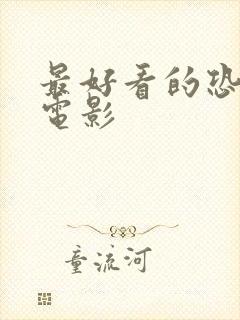 最好看的恐
電影
童流河